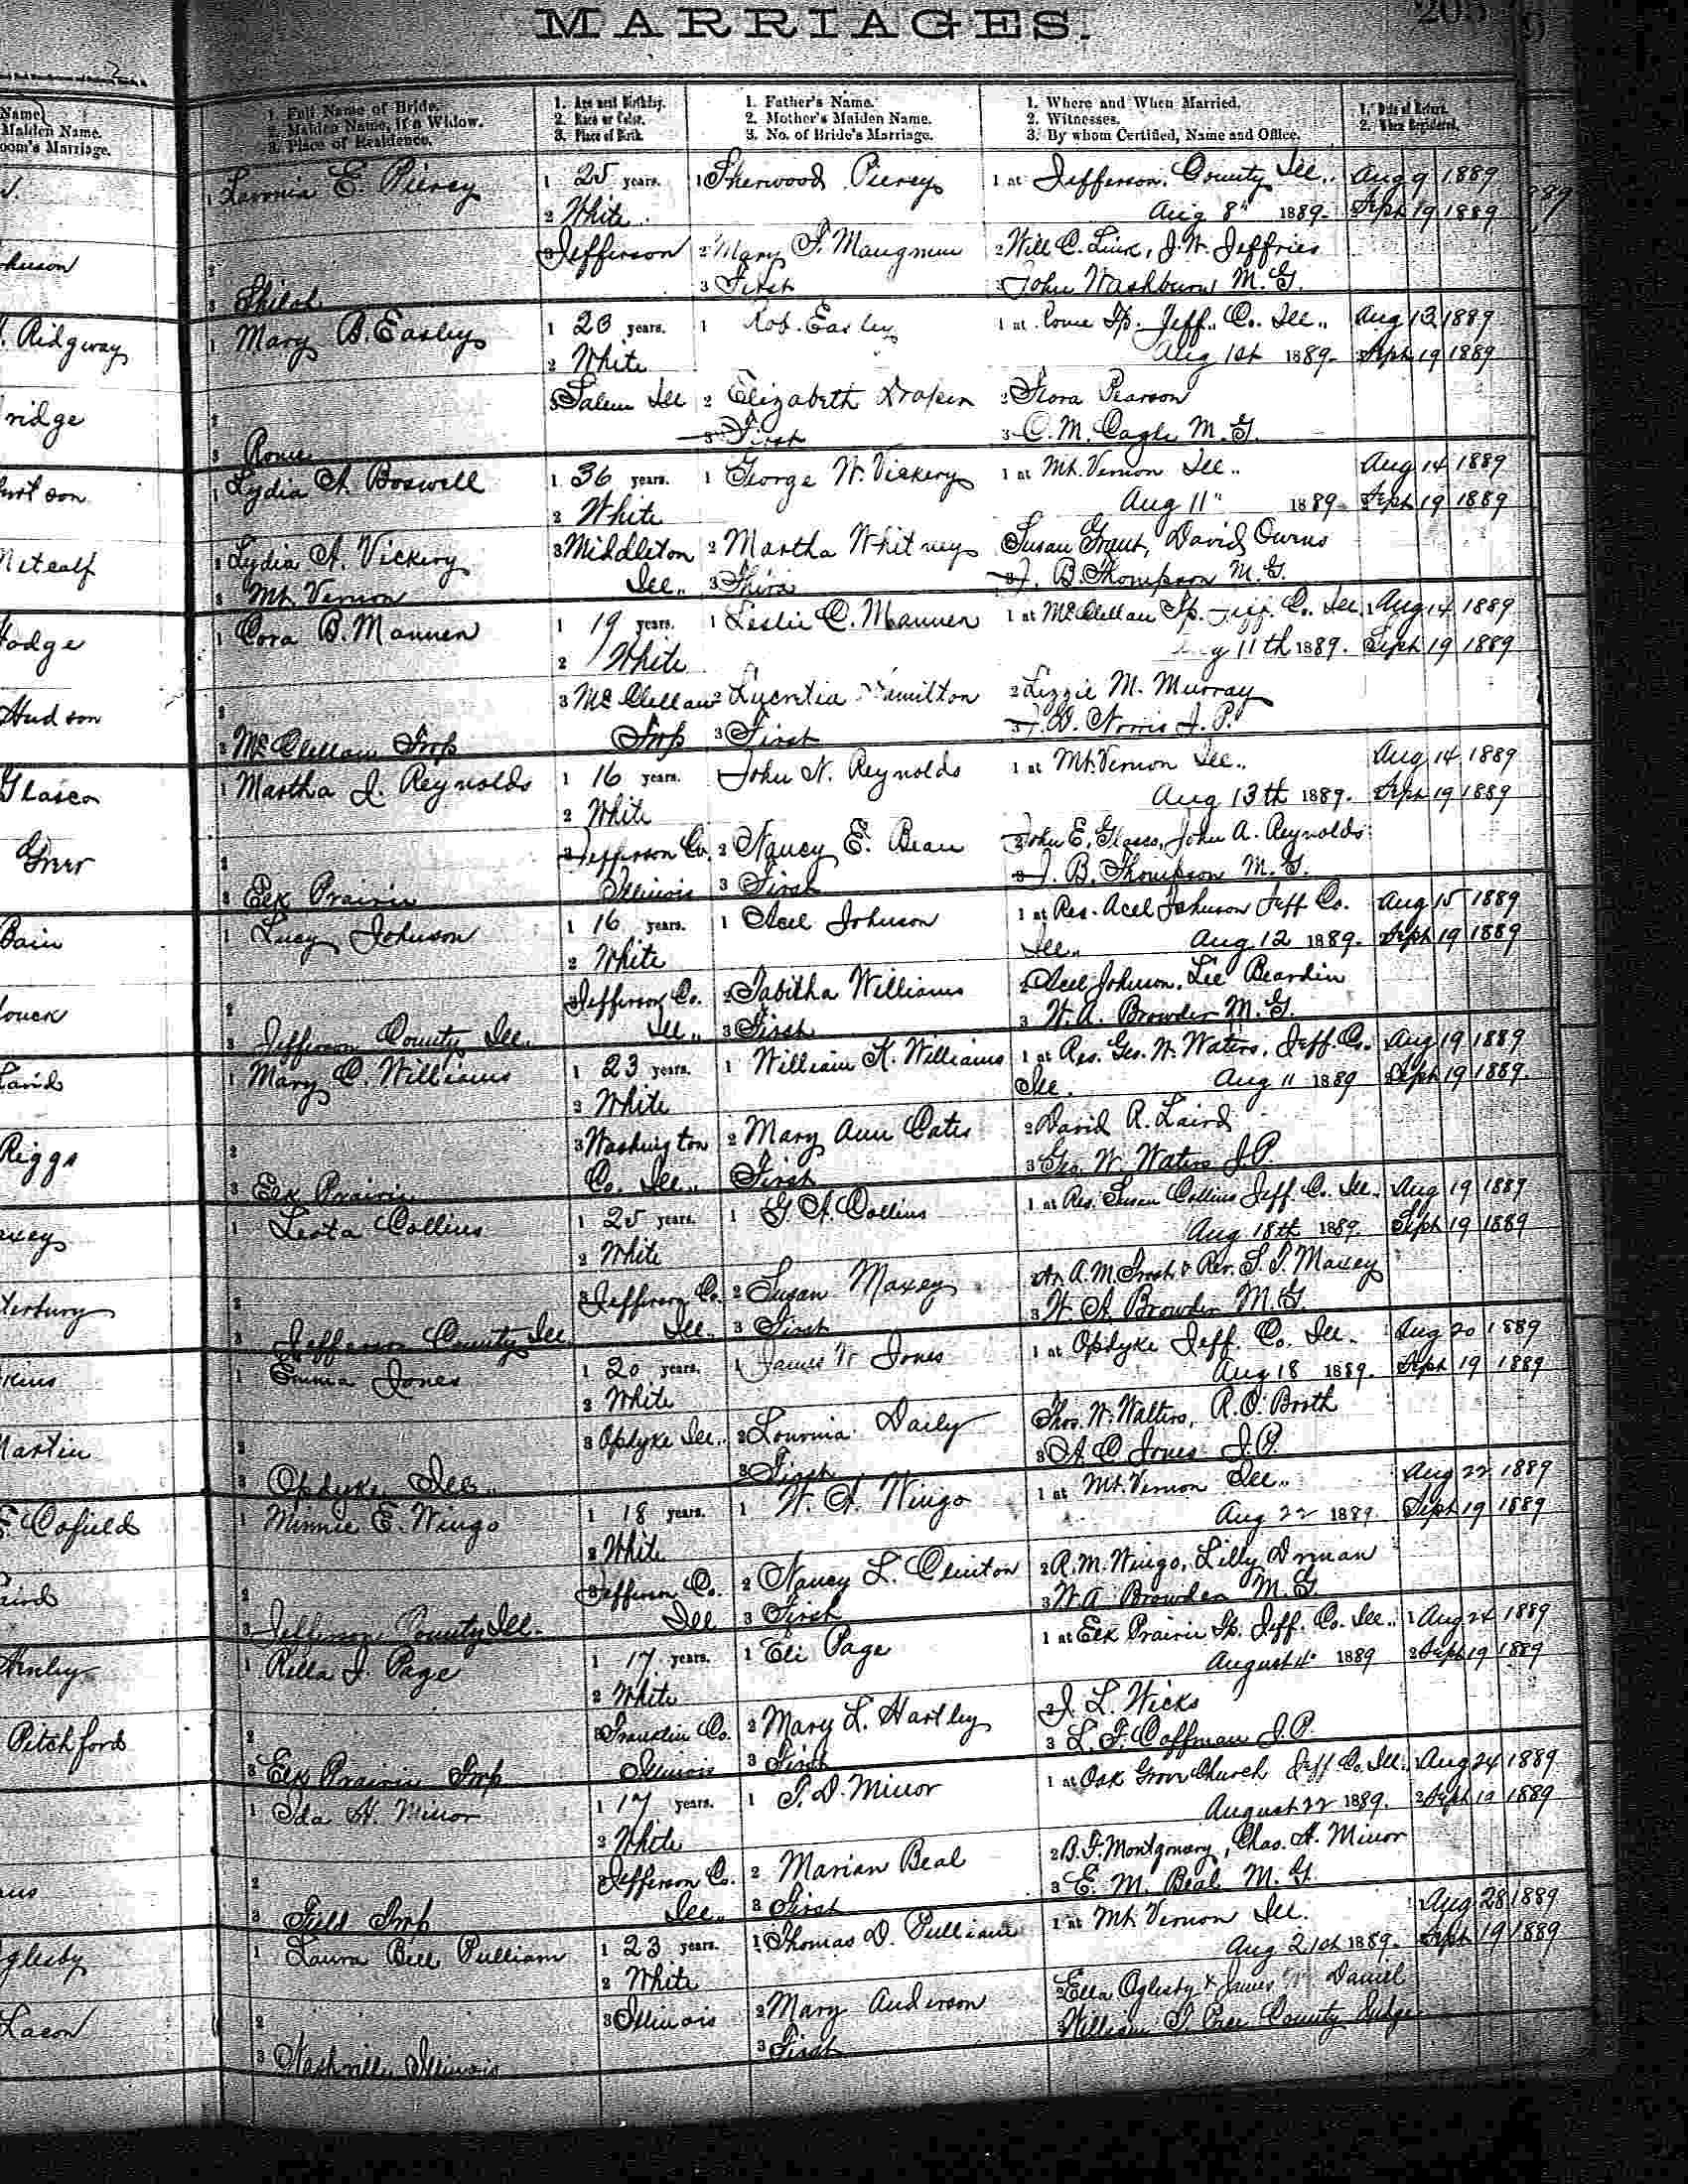 MARRIAGES.
205
Name
Maiden Name.
oom's Marriage.
1. Full Name of Bride.
2. Maiden Name, if a Widow.
3. Place of Residence.
1. Age next Birthday.
2. Race or Color.
3. Place of Birth.
1. Father's Name.
2. Mother's Maiden Name.
3. No. of Bride's Marriage.
1. Where and When Married.
2. Witnesses.
3. By whom Certified, Name and Office.
1. Date of Return.
2. When Registered.
1 E. Piercy 1 25 years. 1 Sherwood Piercy 1 at Jefferson County Ill.. Aug 9 1889
2 White Aug 8" 1889. Sept 19 1889
2 3 Jefferson 2 Mary F. Maugmun 2 Will C. Link, J. W. Jeffries
3 Shiloh 3 First 3 John Washburn M. G.
Ridgway 1 Mary B. Easley 1 23 years. 1 Rob. Easley 1 at Rome Tp. Jeff. Co. Ill.. Aug 13 1889
2 White Aug 1st 1889. Sept 19 1889
ridge 2 3 Salem Ill 2 Elizabeth Draper 2 Flora Pearson
3 Rome 3 First 3 C. M. Cagle M. G.
1 Lydia A. Boswell 1 36 years. 1 George W. Vickery 1 at Mt. Vernon Ill.. Aug 14 1889
2 White Aug 11" 1889 Sept 19 1889
Metcalf Lydia A. Vickery 3 Middleton 2 Martha Whitney Susan Grant, David Owens
3 Mt. Vernon Ill.. 3 Third 3 J. B. Thompson M. G.
odge 1 Cora B. Mannen 1 19 years. 1 Leslie C. Mannen 1 at McClellan Tp. Jeff. Co. Ill. Aug 14 1889
2 White 11th 1889. Sept 19 1889
Hudson 2 3 McClellan 2 Lucretia Hamilton 2 Lizzie M. Murray
3 McClellan Twp Twp 3 First 3 J. D. Norris J. P.
Glasco 1 Martha J. Reynolds 1 16 years. John N. Reynolds 1 at Mt. Vernon Ill.. Aug 14 1889
2 White Aug 13th 1889. Sept 19 1889
Greer 2 3 Jefferson Co. 2 Nancy E. Bean 2 John E. Glasco, John A. Reynolds
3 Elk Prairie Illinois 3 First 3 J. B. Thompson M. G.
Bain 1 Lucy Johnson 1 16 years. 1 Acel Johnson 1 at Res. Acel Johnson Jeff Co. Aug 15 1889
2 White Ill.. Aug 12 1889. Sept 19 1889
ouck 2 3 Jefferson Co. 2 Tabitha Williams 2 Acel Johnson, Lee Beardin
3 Jefferson County Ill. Ill.. 3 First 3 W. A. Browder M. G.
Laird 1 Mary C. Williams 1 23 years. 1 William K. Williams 1 at Res. Geo. W. Waters, Jeff. Co. Aug 19 1889
2 White Ill. Aug 11 1889 Sept 19 1889.
Riggs 2 3 Washington 2 Mary Ann Cates 2 David R. Laird
3 Elk Prairie Co. Ill.. First 3 Geo. W. Waters J. P.
axey 1 Leota Collins 1 25 years. 1 G. A. Collins 1 at Res. Susan Collins Jeff. Co. Ill.. Aug 19 1889
2 White Aug 18th 1889. Sept 19 1889
terbury 2 3 Jefferson Co. 2 Susan Maxey A. M. & Rev. S. T. Maxey
3 Jefferson County Ill Ill. 3 First 3 W. A. Browder M. G.
kins 1 Emma Jones 1 20 years. 1 James W Jones 1 at Opdyke Jeff. Co. Ill. Aug 20 1889
2 White Aug 18 1889. Sept 19 1889
Martin 2 3 Opdyke Ill.. 2 Louvinia Daily Thos. W. Walters, R. O. Booth
3 Opdyke Ill.. 3 First 3 A. C. Jones J. P.
Cofield 1 Minnie E. Wingo 1 18 years. 1 W. A. Wingo 1 at Mt. Vernon Ill.. Aug 22 1889
2 White Aug 22 1889. Sept 19 1889
aird 2 3 Jefferson Co. 2 Nancy L. Clinton 2 R. M. Wingo, Lilly Orman
3 Jefferson County Ill. Ill 3 First 3 W. A. Browder M. G.
1 Rella J. Page 1 17 years. 1 Eli Page 1 at Elk Prairie Tp. Jeff. Co. Ill.. 1 Aug 24 1889
2 White August 4" 1889 2 Sept 19 1889
Pitchford 2 3 Franklin Co. 2 Mary L. Hartley 2 J. L. Wicks
3 Elk Prairie Twp Illinois 3 First 3 L. F. Coffman J. P.
1 Ida H. Minor 1 17 years. 1 T. D. Minor 1 at Oak Grove Church Jeff Co. Ill. Aug 24 1889
2 White August 22 1889. 2 Sept 19 1889
2 3 Jefferson Co. 2 Marian Beal 2 B. F. Montgomery, Chas. H. Minor
3 Field Twp Ill.. 3 First 3 E. M. Beal M. G.
glesby 1 Laura Bell Pulliam 1 23 years. 1 Thomas D. Pulliam 1 at Mt. Vernon Ill. Aug 28 1889
2 White Aug 21st 1889. Sept 19 1889
Lacon 2 3 Illinois 2 Mary Anderson Ella Oglesby & James Daniel
3 Nashville Illinois 3 First William T. Pace County Judge